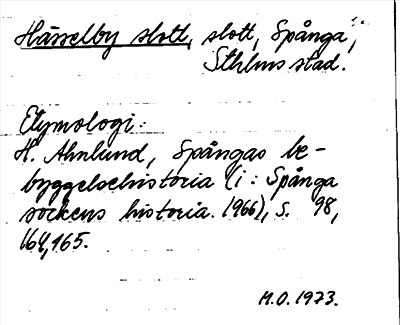 Hässelby slott, slott, Spånga,
Sthlms stad.
Etymologi:
H. Ahnlund, Spångas be-
byggelsehistoria (i: Spånga
sockens historia. 1966), s. 98,
164, 165.
M.O. 1973.